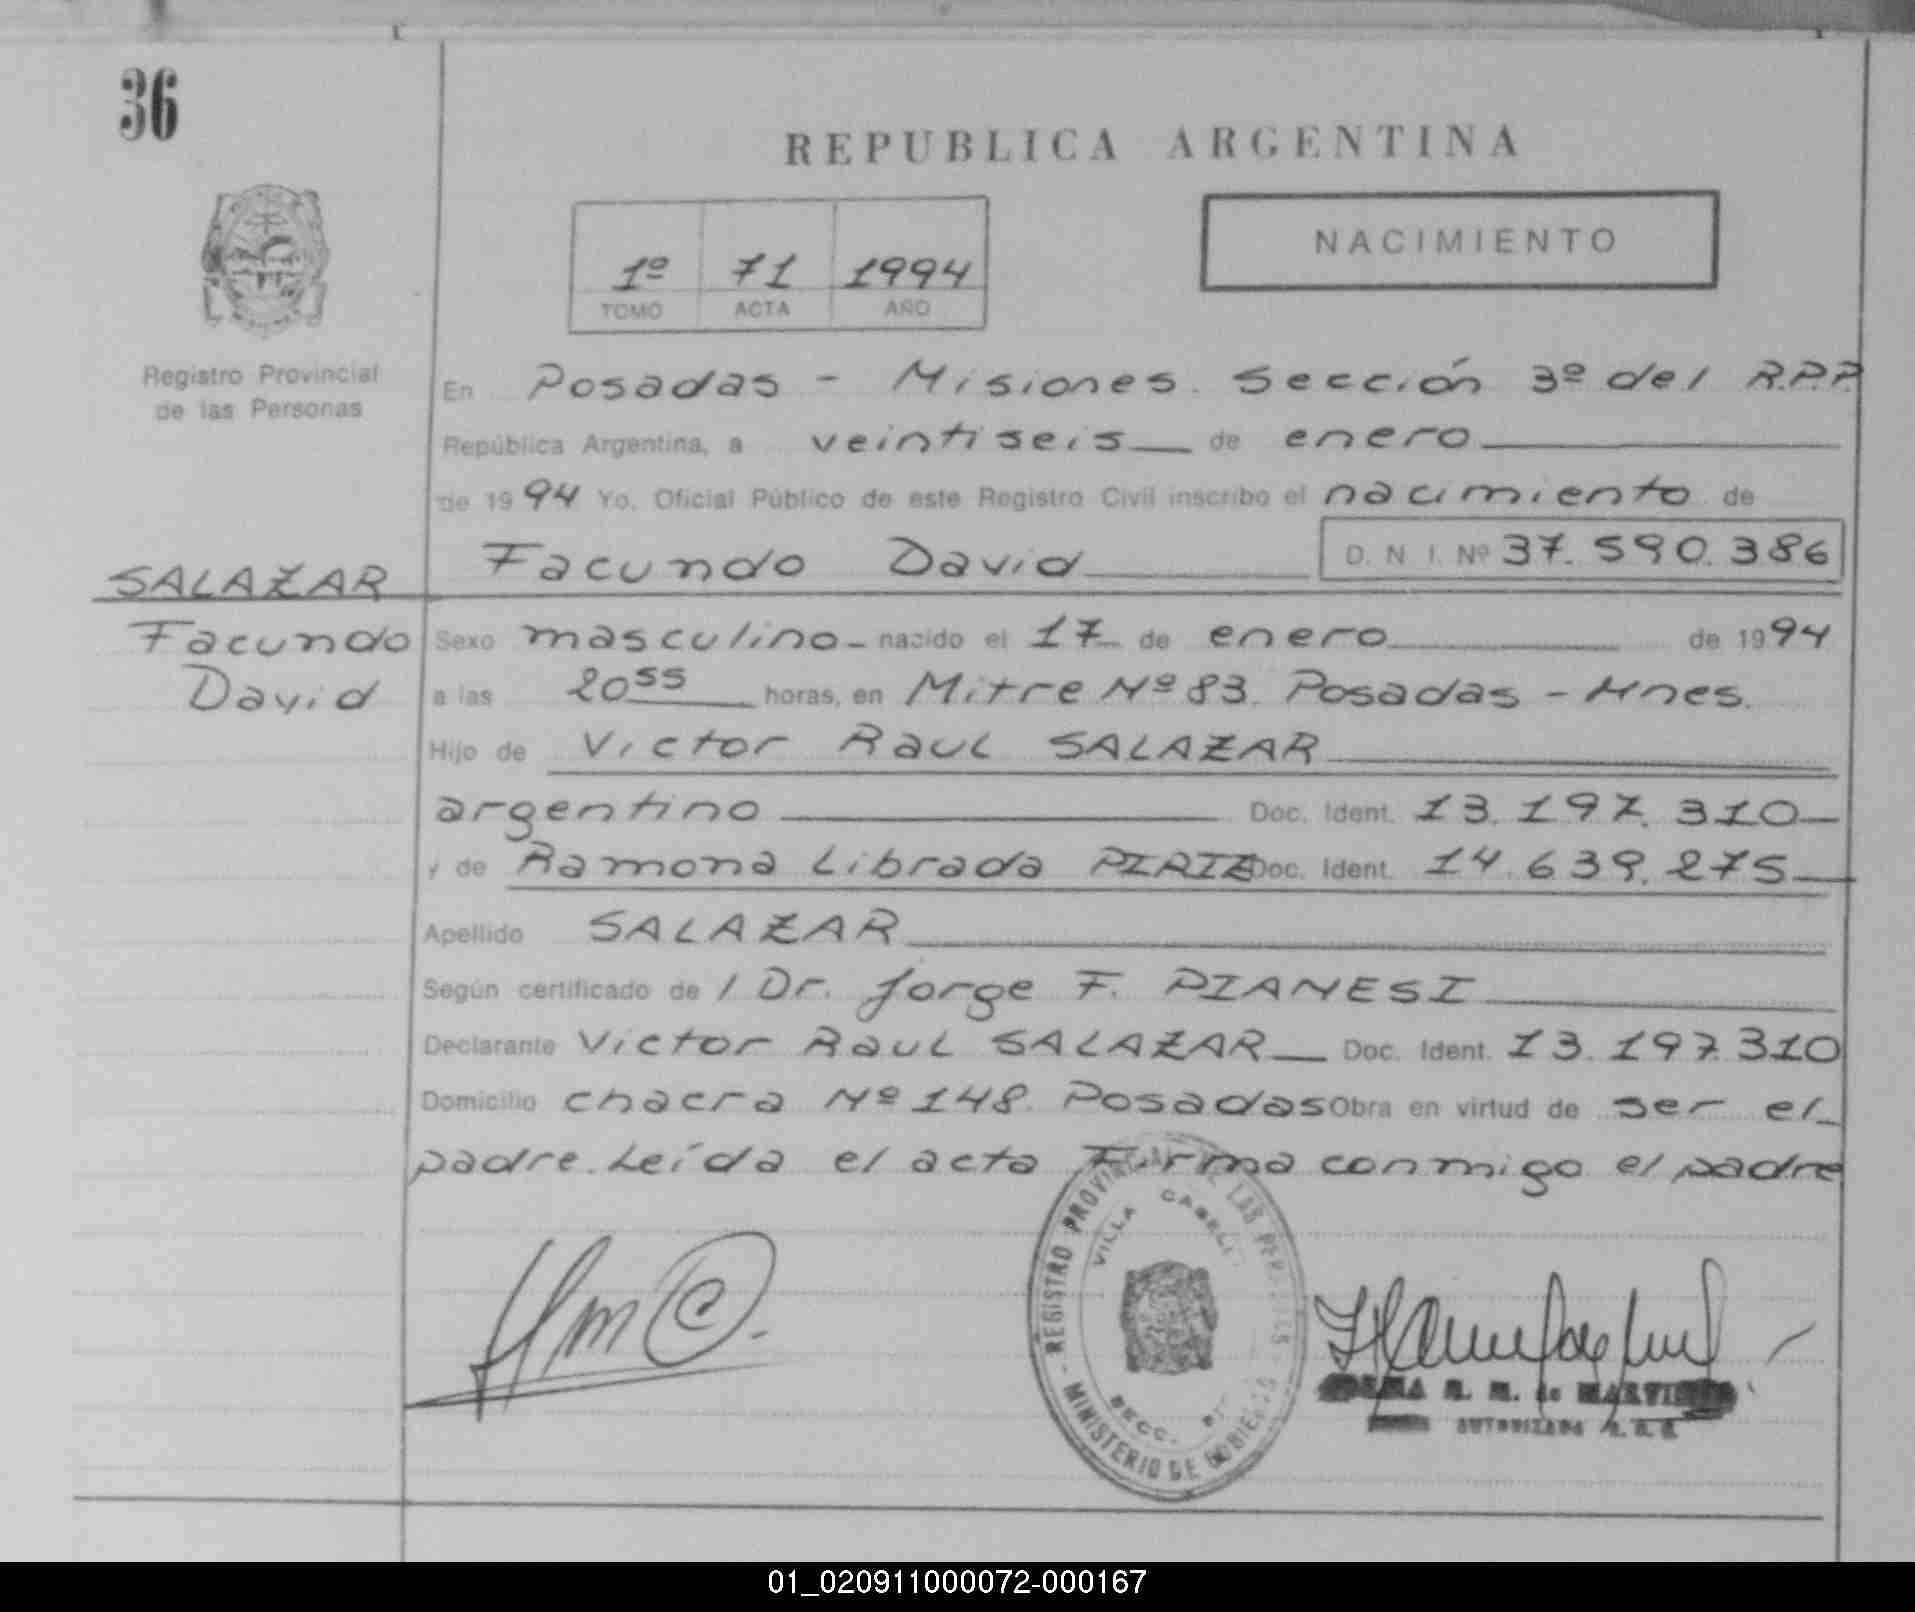 36
REPUBLICA ARGENTINA
NACIMIENTO
1º 71 1994
TOMO ACTA AÑO
Registro Provincial
de las Personas
En Posadas - Misiones. Sección 3º del R.P.P.
República Argentina, a veintiseis de enero
de 1994 Yo, Oficial Público de este Registro Civil inscribo el nacimiento de
Facundo David D. N. I. Nº 37.590.386
SALAZAR
Facundo
David
Sexo masculino - nacido el 17 de enero de 1994
a las 20⁵⁵ horas, en Mitre Nº 83. Posadas - Mnes.
Hijo de Victor Raul SALAZAR
argentino Doc. Ident. 13.197.310
y de Ramona Librada PIRIZ Doc. Ident. 14.639.275
Apellido SALAZAR
Según certificado de / Dr. Jorge F. PIANESI
Declarante Victor Raul SALAZAR Doc. Ident. 13.197.310
Domicilio chacra Nº 148. Posadas Obra en virtud de ser el
padre. Leída el acta Firma conmigo el padre
REGISTRO PROVINCIAL DE LAS PERSONAS
VILLA
SECC.
MINISTERIO DE GOBIERNO
M. de
AUTORIZADA
01_020911000072-000167